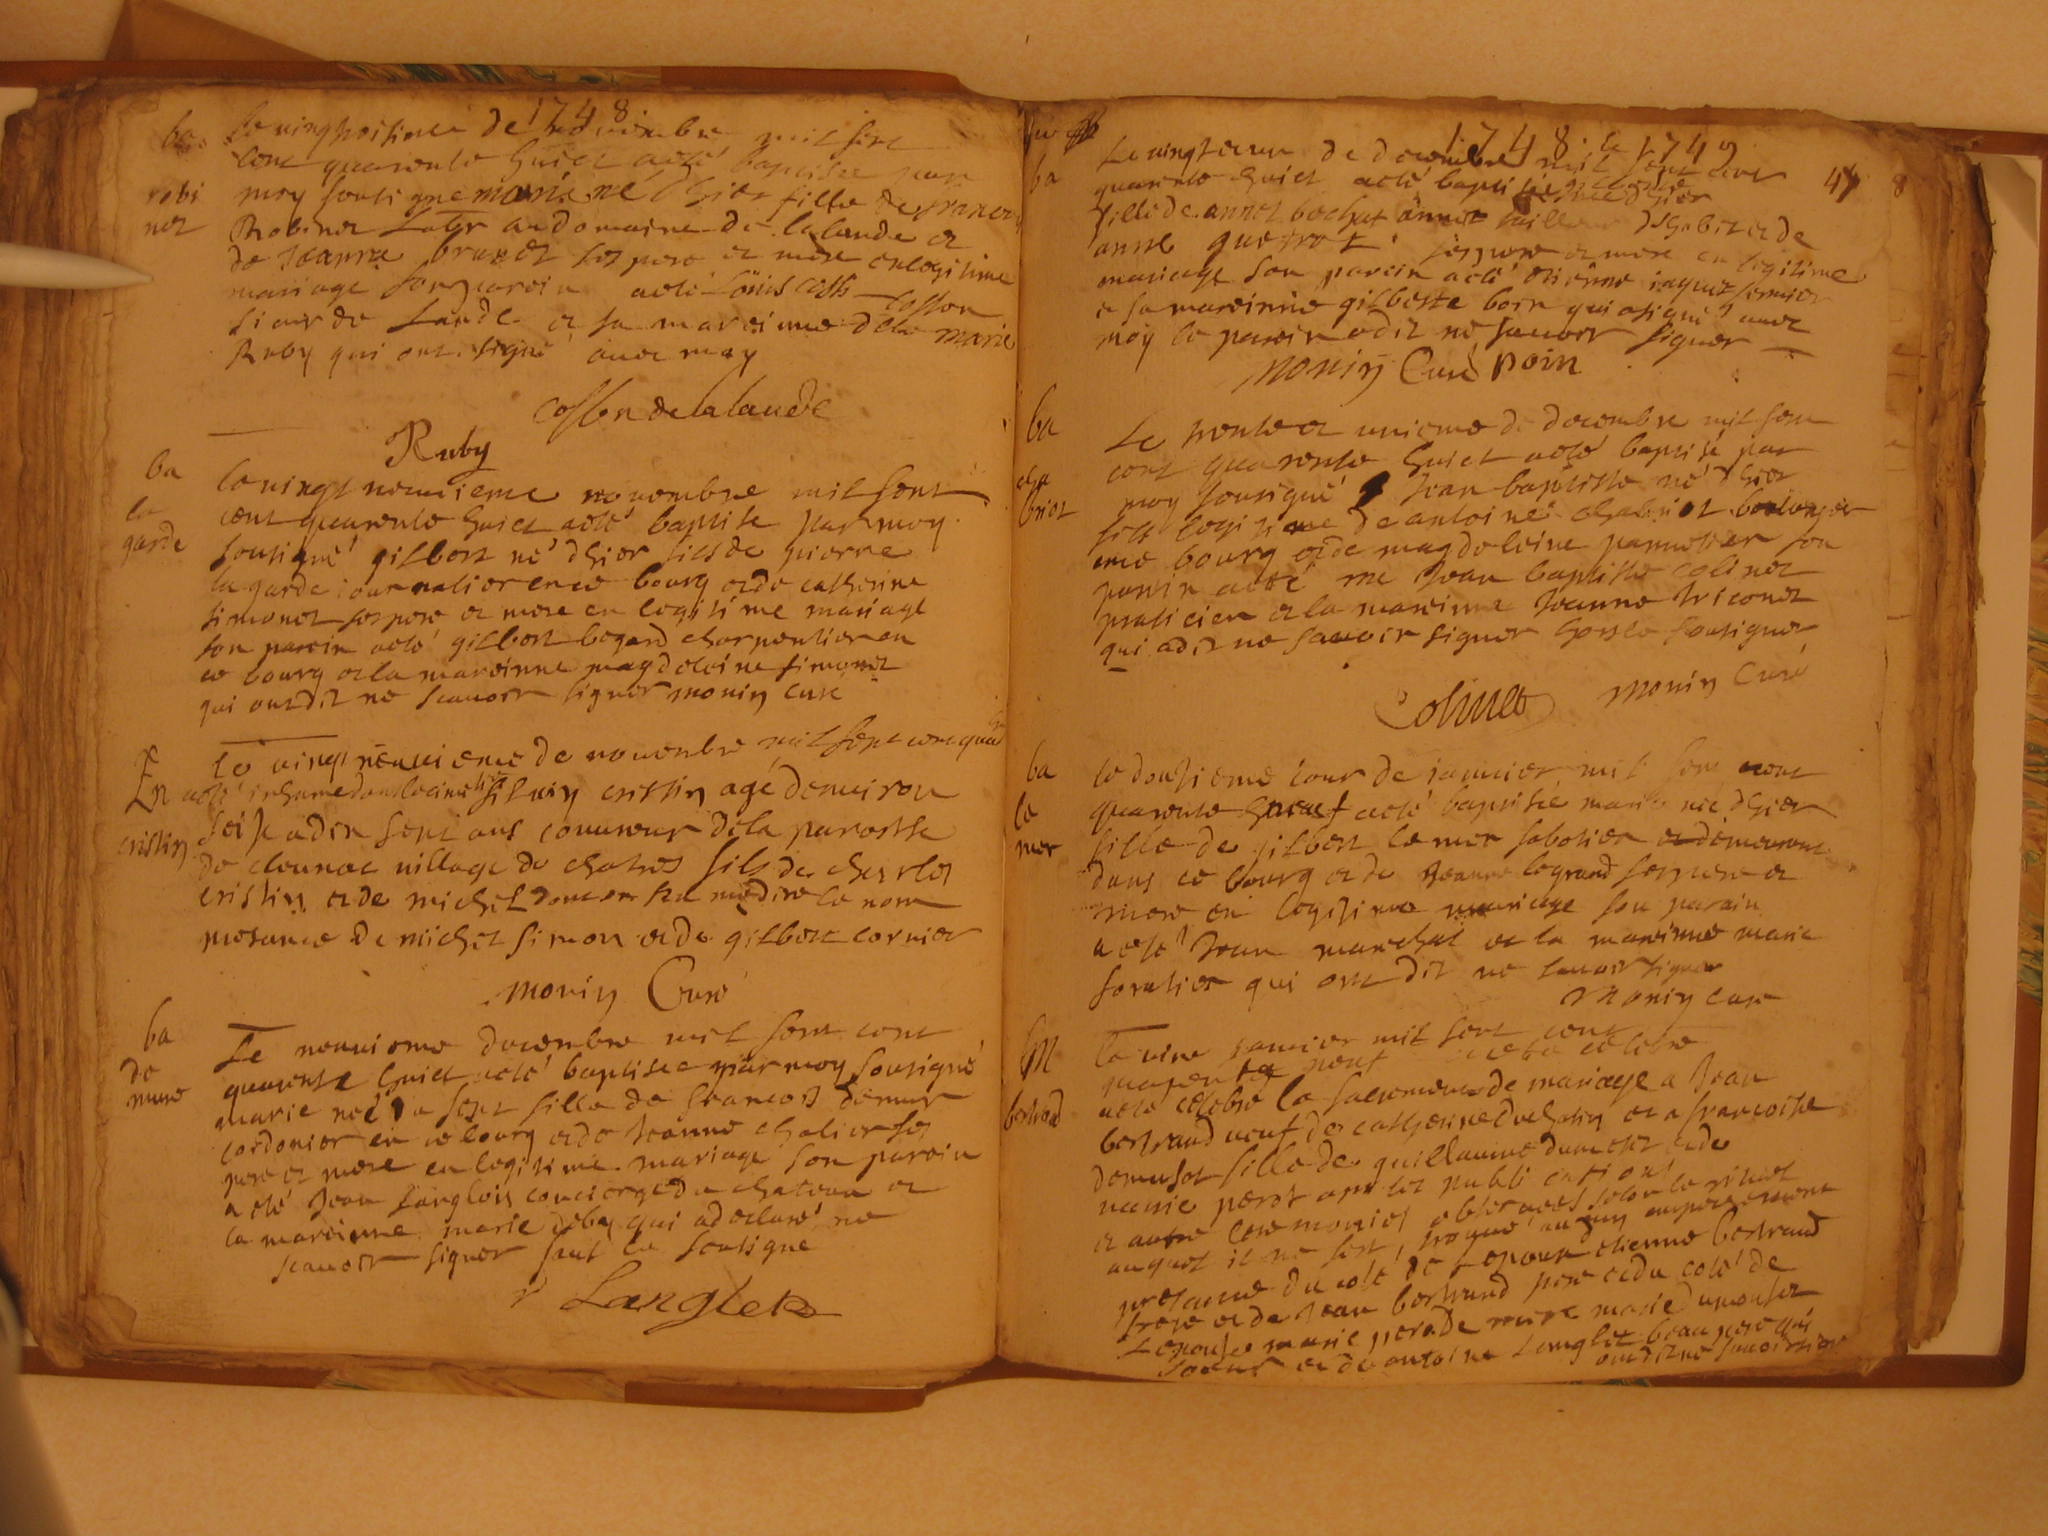 1748
ba le vingtroisieme de novembre mil sept
cent quarente huict a eté baptisee par
robi moy sousigne marie né d'hier fille de francois
net Robinet au domaine de lalande et
de jeanne brunet ses pere et mere en legitime
mariage son parein a eté Louis cosson
sieur de Lande et sa mareinne delle marie
Ruby qui ont signé avec moy
cosson de lalande
Ruby
ba le vingt neuvieme novembre mil sept
la cent quarente huict a eté baptise par moy
garde sousigné gilbert né d'hier fils de pierre
lagarde journalier en ce bourg et de catherine
simonet ses pere et mere en legitime mariage
son parein a eté gilbert begard charpentier en
ce bourg et la mareinne magdeleine simonet
qui ont dit ne scavoir signer monin curé
le vingt neuvieme de novembre mil sept cent qua
En a eté inhumé dans le cimetiere silvin cristin agé d'environ
cristin seize a dix sept ans couvreur de la paroisse
de village de chatres fils de charles
cristin et de michel dont on n'a me dire le nom
presance de michel simon et de gilbert cornier
monin Curé
ba Le neuvieme decembre mil sept cent
de quarente huict a eté baptisee par moy sousigné
mure marie neé a sept fille de francois demur
cordonier en ce bourg et de jeanne chalier ses
pere et mere en legitime mariage son parein
a eté jean Langlois concierge du chateau et
la mareinne marie qui a declaré ne
scavoir signer sauf le sousigne
Langlets
1748 & 1749
44 8
ba Le vingt un de decembre mil sept cent
quarente huict a eté baptisée née d'hier
fille de annet bechat tailleur d'habit et de
anne ses pere et mere en legitime
mariage son parein a eté etienne jaquet fermier
et sa mareinne gilberte boin qui a signé avec
moy le parein a dit ne scavoir signer
monin Curé poin
ba Le trente et unieme de decembre mil sept
cent quarente huict a eté baptisé par
cha moy sousigné jean baptiste né d'hier
briot fils legitime de antoine chabriot boulanger
en ce bourg et de magdeleine son
parein a eté me jean baptiste colinet
praticien et la mareinne jeanne triconet
qui a dit ne scavoir signer sousigner
Colinet monin Curé
ba le douzieme jour de janvier mil sept cent
le quarente neuf a eté baptisée marie née d'hier
mer fille de gilbert lemer sabotier et demeurant
dans ce bourg et de jeanne legrand ses pere et
mere en legitime mariage son parein
a eté jean marechal et la mareinne marie
foratier qui ont dit ne scavoir signer
monin curé
M Le janvier mil sept cent
quarente neuf a eté celebre
bertrand a eté celebre le sacrement de mariage a jean
bertrand veuf de catherine duchatin et a francoise
fille de guillaume et de
marie perot apres les publications
et autre ceremonies observées selon le rituel
auquel il ne s'est trouvé aucun empechement
presance du coté de Lepoux etienne bertrand
frere et de jean bertrand pere et du coté de
Lepouse marie perot mere marie
soeur et de antoine Langlet beau pere qui
ont dit ne scavoir signer